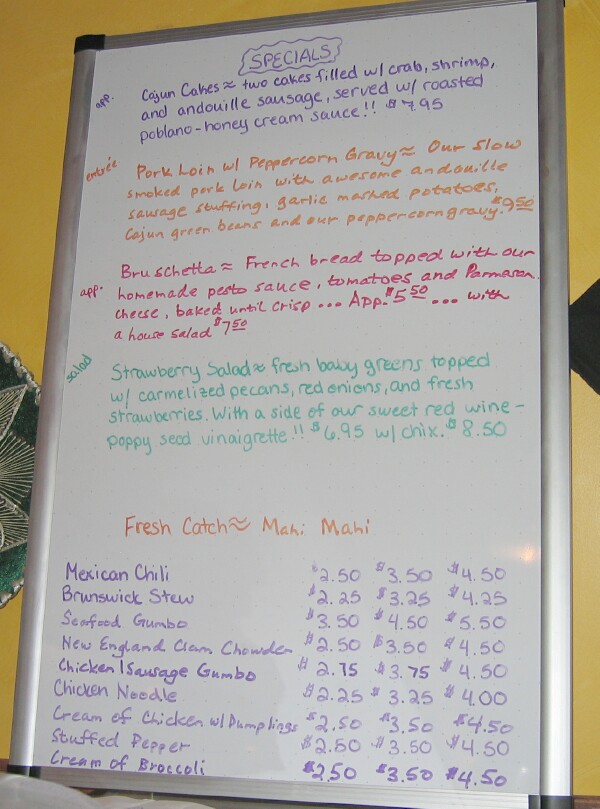 SPECIALS
app. Cajun Cakes ≈ two cakes filled w/ crab, shrimp,
and andouille sausage, served w/ roasted
poblano-honey cream sauce!! $7.95
entrée Pork Loin w/ Peppercorn Gravy ≈ Our slow
smoked pork loin with awesome andouille
sausage stuffing, garlic mashed potatoes,
Cajun green beans and our peppercorn gravy. $9.50
Bruschetta ≈ French bread topped with our
app. homemade pesto sauce, tomatoes and Parmesan
cheese, baked until crisp ... App. $5.50 ... with
a house salad $7.50
salad Strawberry Salad ≈ fresh baby greens topped
w/ carmelized pecans, red onions, and fresh
strawberries. With a side of our sweet red wine-
poppy seed vinaigrette!! $6.95 w/ chix. $8.50
Fresh Catch ≈ Mahi Mahi
Mexican Chili $2.50 $3.50 $4.50
Brunswick Stew $2.25 $3.25 $4.25
Seafood Gumbo $3.50 $4.50 $5.50
New England Clam Chowder $2.50 $3.50 $4.50
Chicken/Sausage Gumbo $2.75 $3.75 $4.50
Chicken Noodle $2.25 $3.25 $4.00
Cream of Chicken w/ Dumplings $2.50 $3.50 $4.50
Stuffed Pepper $2.50 $3.50 $4.50
Cream of Broccoli $2.50 $3.50 $4.50